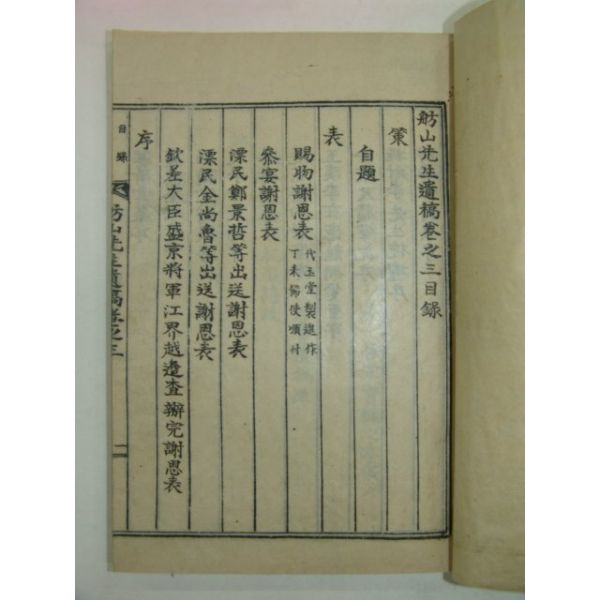 舫山先生遺稿卷之三目錄
策
自題
表
賜物謝恩表
代玉堂製進作
丁未節使順付
參宴謝恩表
漂民鄭景哲等出送謝恩表
漂民金尚魯等出送謝恩表
欽差大臣盛京將軍江界越邊査辦完謝恩表
序
目錄
舫山先生遺稿卷之三
一